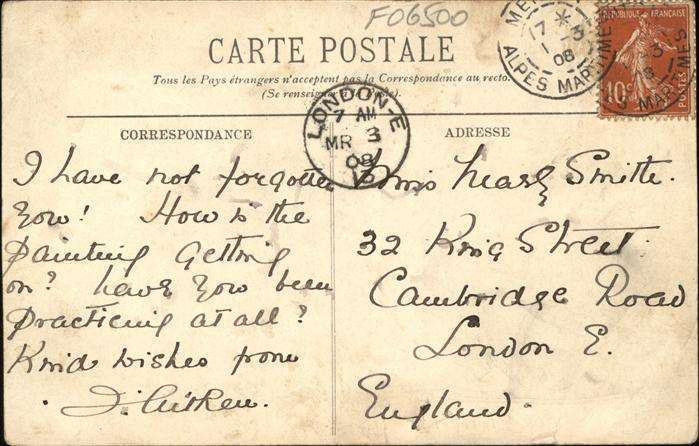 F06500
CARTE POSTALE
Tous les Pays étrangers n'acceptent pas la Correspondance au recto.
(Se renseigner à la Poste).
CORRESPONDANCE
I have not forgotten
you! How is the
painting getting
on? have you been
practicing at all?
Kind wishes from
J. Aitken.
ADRESSE
Miss Smith.
32 King Street.
Cambridge Road
London E.
England.
LONDON-E
7 AM
MR 3
08
ME
17 3
1
08
ALPES MARITIMES
REPUBLIQUE FRANÇAISE
10c
POSTES
3
08
MARITIMES